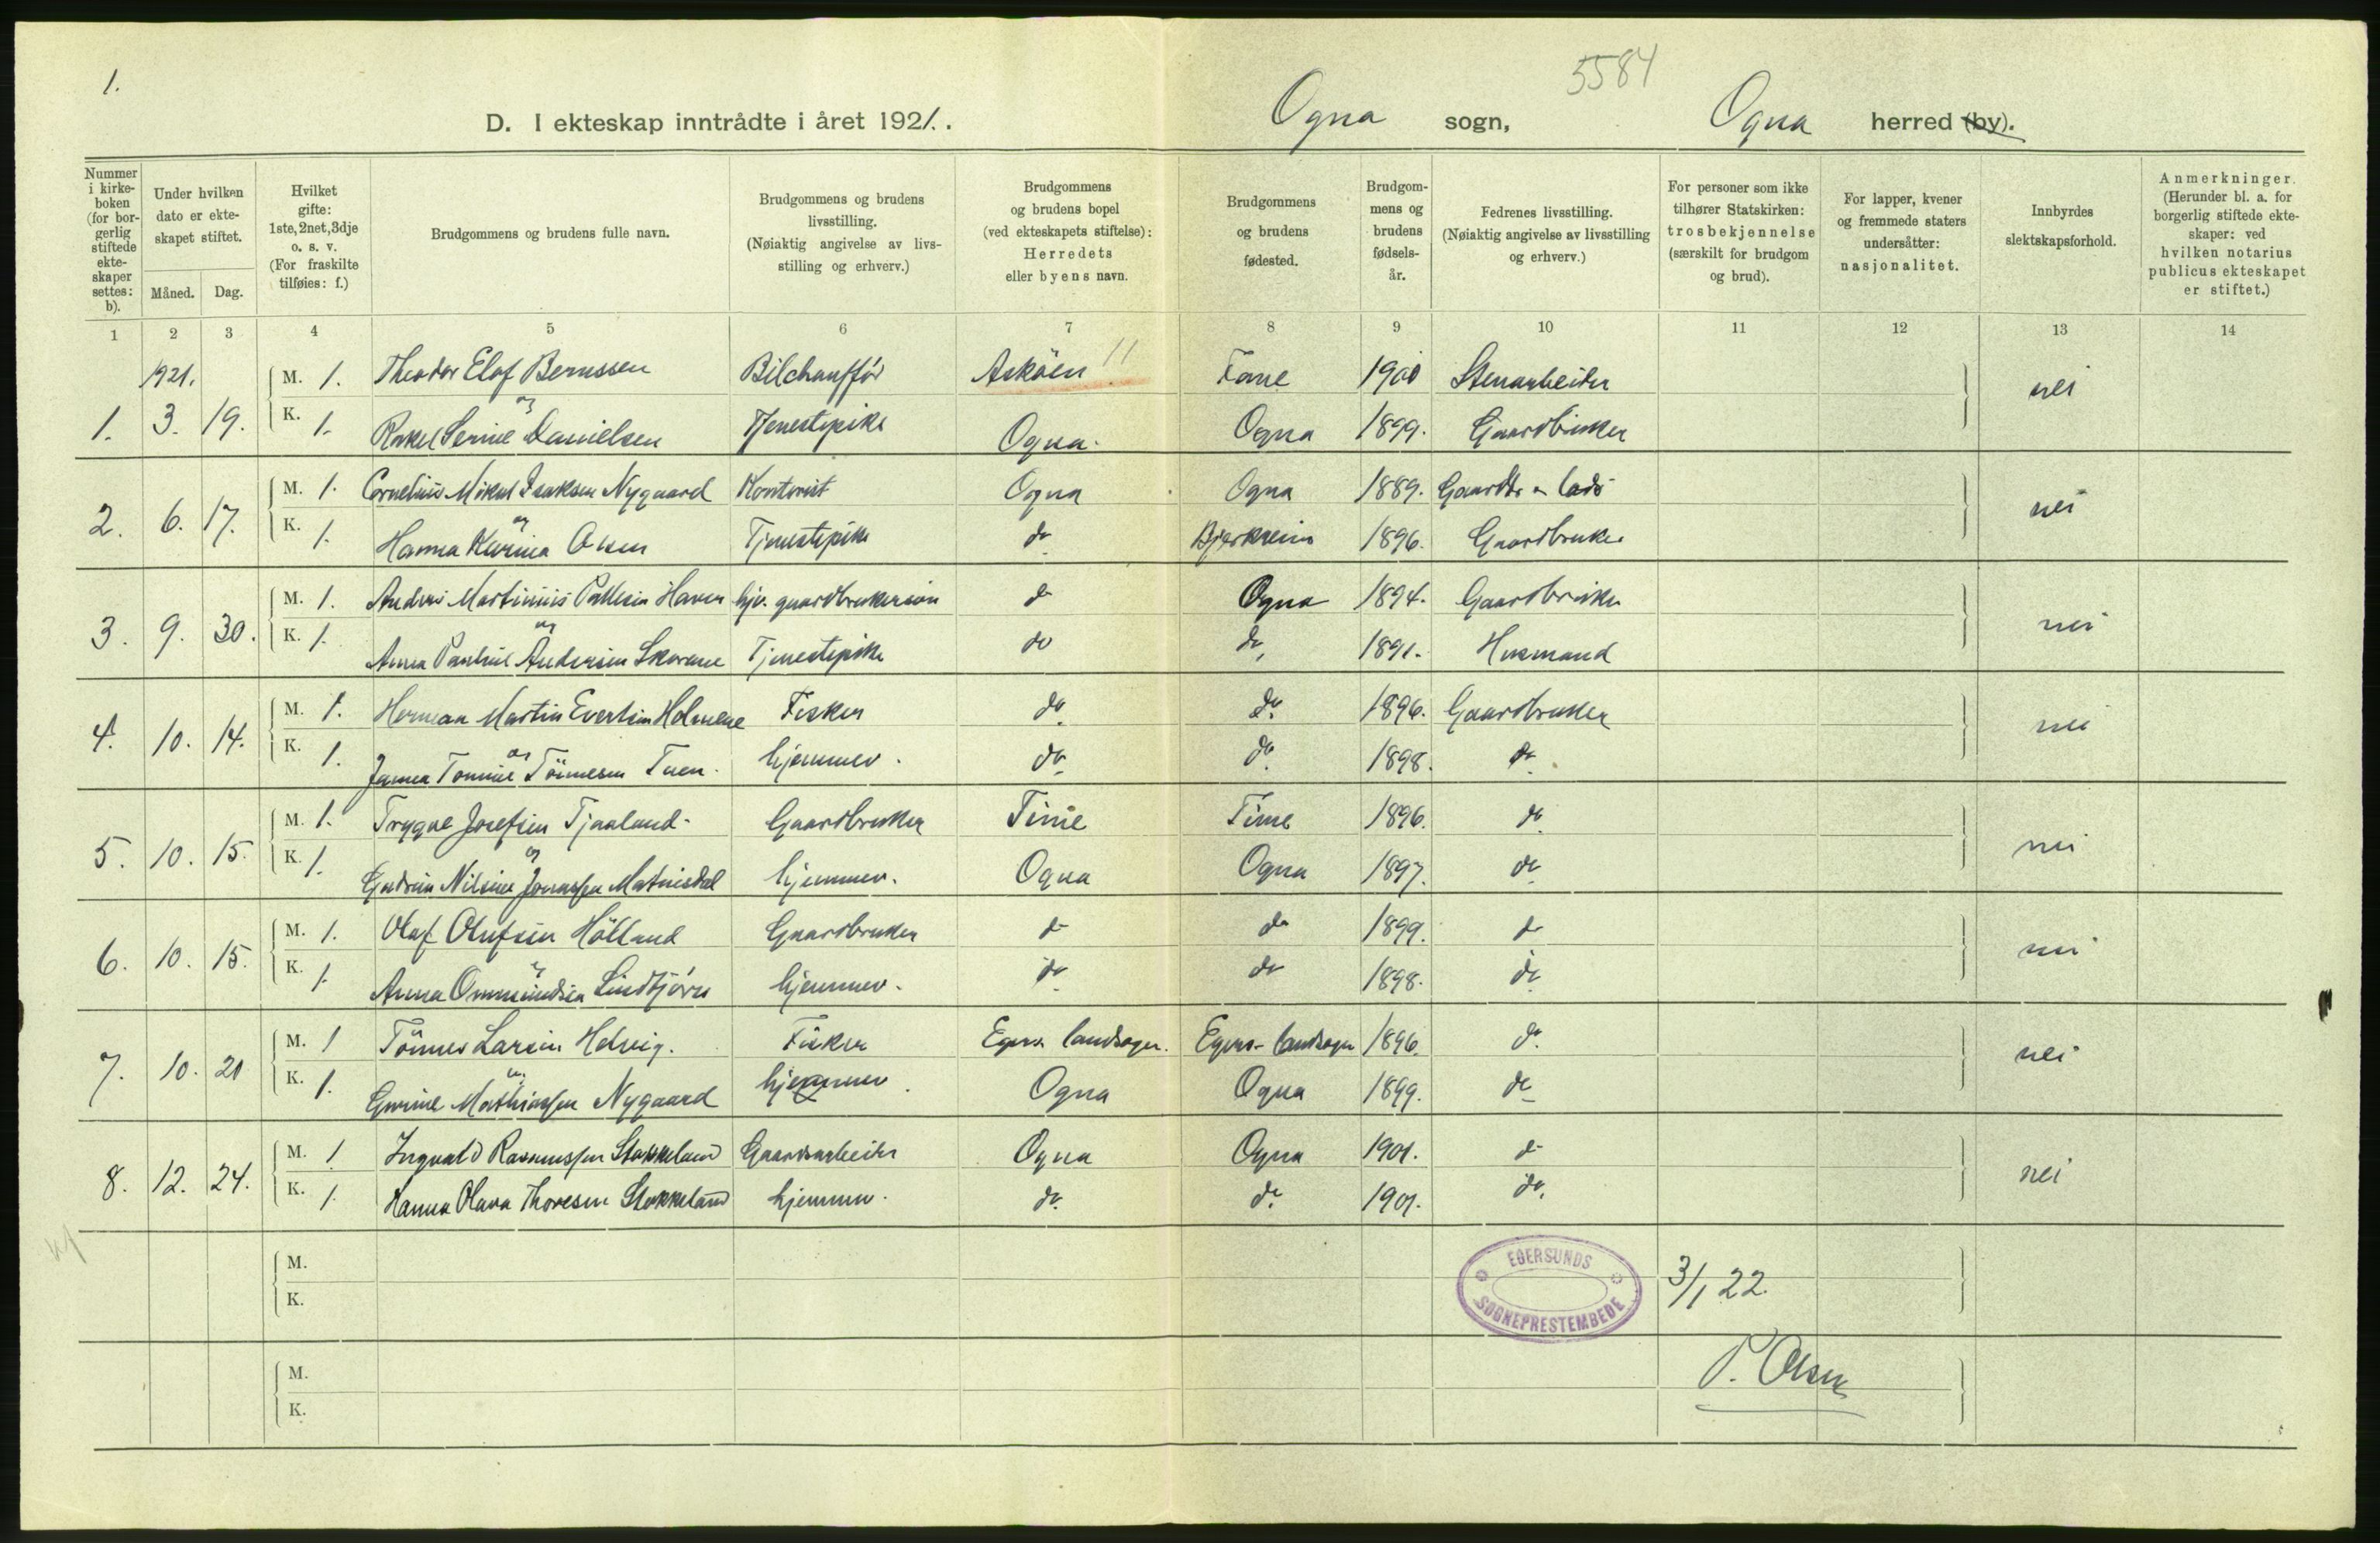 1.
5584
D. I ekteskap inntrådte i året 1921. .
Ogna sogn, Ogna herred (by).
Nummer i kirkeboken (for borgerlig stiftede ekteskaper settes: b).
Under hvilken dato er ekteskapet stiftet.
Måned. Dag.
Hvilket gifte: 1ste, 2net, 3dje o. s. v. (For fraskilte tilføies: f.)
Brudgommens og brudens fulle navn.
Brudgommens og brudens livsstilling. (Nøiaktig angivelse av livsstilling og erhverv.)
Brudgommens og brudens bopel (ved ekteskapets stiftelse): Herredets eller byens navn.
Brudgommens og brudens fødested.
Brudgommens og brudens fødselsår.
Fedrenes livsstilling. (Nøiaktig angivelse av livsstilling og erhverv.)
For personer som ikke tilhører Statskirken: trosbekjennelse (særskilt for brudgom og brud).
For lapper, kvener og fremmede staters undersåtter: nasjonalitet.
Innbyrdes slektskapsforhold.
Anmerkninger. (Herunder bl. a. for borgerlig stiftede ekteskaper: ved hvilken notarius publicus ekteskapet er stiftet.)
1 2 3 4 5 6 7 8 9 10 11 12 13 14
1921. M. 1. Theodor Elof Bernssen Bilchauffór Asköen 11 Fane 1900 Stenarbeider nei
og
1. 3. 19. K. 1. Rakel Serine Danielsen Tjenestepike Ogna. Ogna 1899. Gaardbruker
M. 1. Cornelius Mikal Isaksen Nygaard Kontorist Ogna Ogna 1889. nei
og
2. 6. 17. K. 1. Hanna Karina Olsen Tjenestepike do Bjerkreim 1896. Gaardbruker
M. 1. Anders Martinius Pallesen Haver hjv. gaardbrukersön do Ogna 1894. Gaardbruker
og
3. 9. 30. K. 1. Anna Andersen Tjenestepike do do, 1891. Husmand nei
M. 1. Herman Martin Evertsen Holmene Fisker do. do. 1896. Gaardbruker
og
4. 10. 14. K. 1. Tönnesen Tuen. hjemmev. do. do. 1898. do. nei
M. 1. Trygve Josefsen Tjaaland. Gaardbruker Time Time 1896. do.
og
5. 10. 15. K. 1. Gudrun Nilsine Jonassen Matnisdal hjemmev. Ogna Ogna 1897. do nei
M. 1. Olaf Olufsen Hölland Gaardbruker do do 1899. do
og
6. 10. 15. K. 1. Anna Ommundsen Lindtjörn hjemmev. do. do 1898. do. nei
M. 1 Tönnes Larsen Helvig. Fisker Egers. landsogn. Egers. landsogn 1896. do. nei
og
7. 10. 20 K. 1. Gurine Mathiassen Nygaard hjemmev. Ogna Ogna 1899. do
M. 1 Ingvald Rasmussen Stokkeland Gaardsarbeider Ogna Ogna 1901. do
8. 12. 24. K. 1. Hanna Olava Thoresen Stokkeland hjemmev. do. do. 1901. do. nei
M.
K.
EGERSUNDS SOGNEPRESTEMBEDE
3/1 22.
M.
K.
P. Olsen